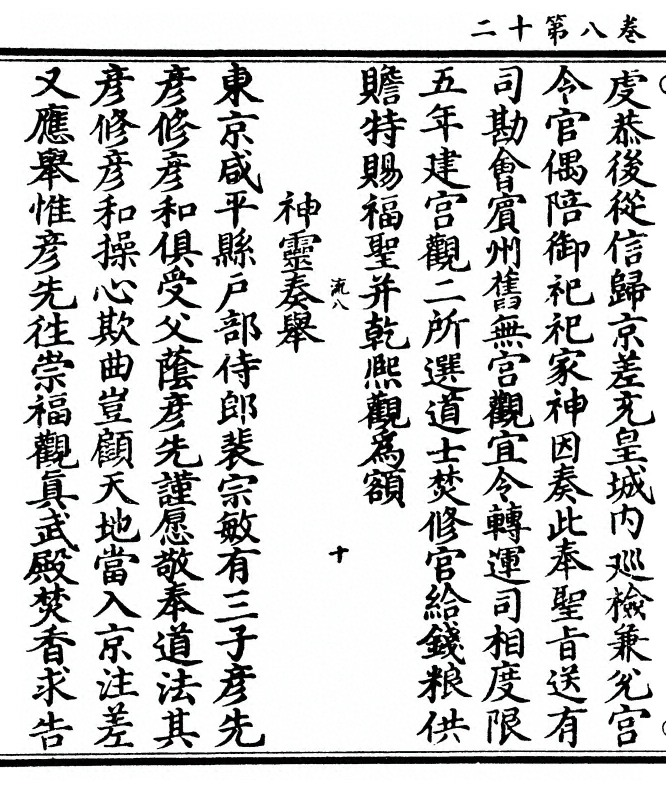 卷八第十二
虔恭後從信歸京差充皇城内廵檢兼兊宫
令官偶陪御祀祀家神因奏此奉聖旨送有
司勘會賔州舊無宫觀宜令轉運司相度限
五年建宫觀二所選道士焚修官給錢粮供
贍特賜福聖并乾熈觀爲額
流八
十
神靈奏舉
東京咸平縣户部侍郎裴宗敏有三子彦先
彦修彦和俱受父蔭彦先謹愿敬奉道法其
彦修彦和操心欺曲豈顧天地當入京注差
又應舉惟彦先往崇福觀真武殿焚香求告